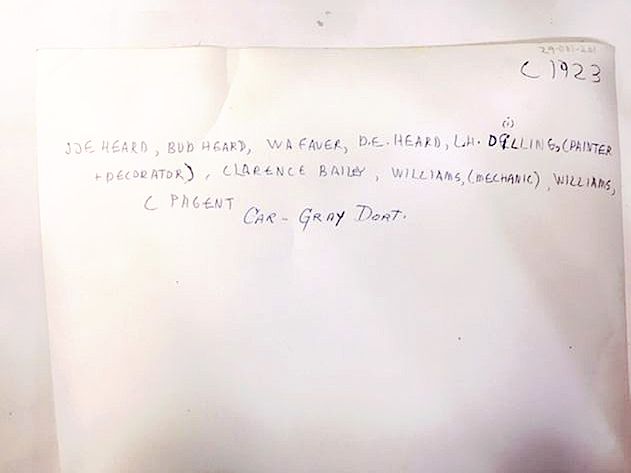 29-001-201
C 1923
(i)
JOE HEARD, BUD HEARD, WA FAVER, D.E. HEARD, L.H. DILLING, (PAINTER
+ DECORATOR), CLARENCE BAILEY, WILLIAMS, (MECHANIC), WILLIAMS,
C PAGENT
CAR - GRAY DORT.